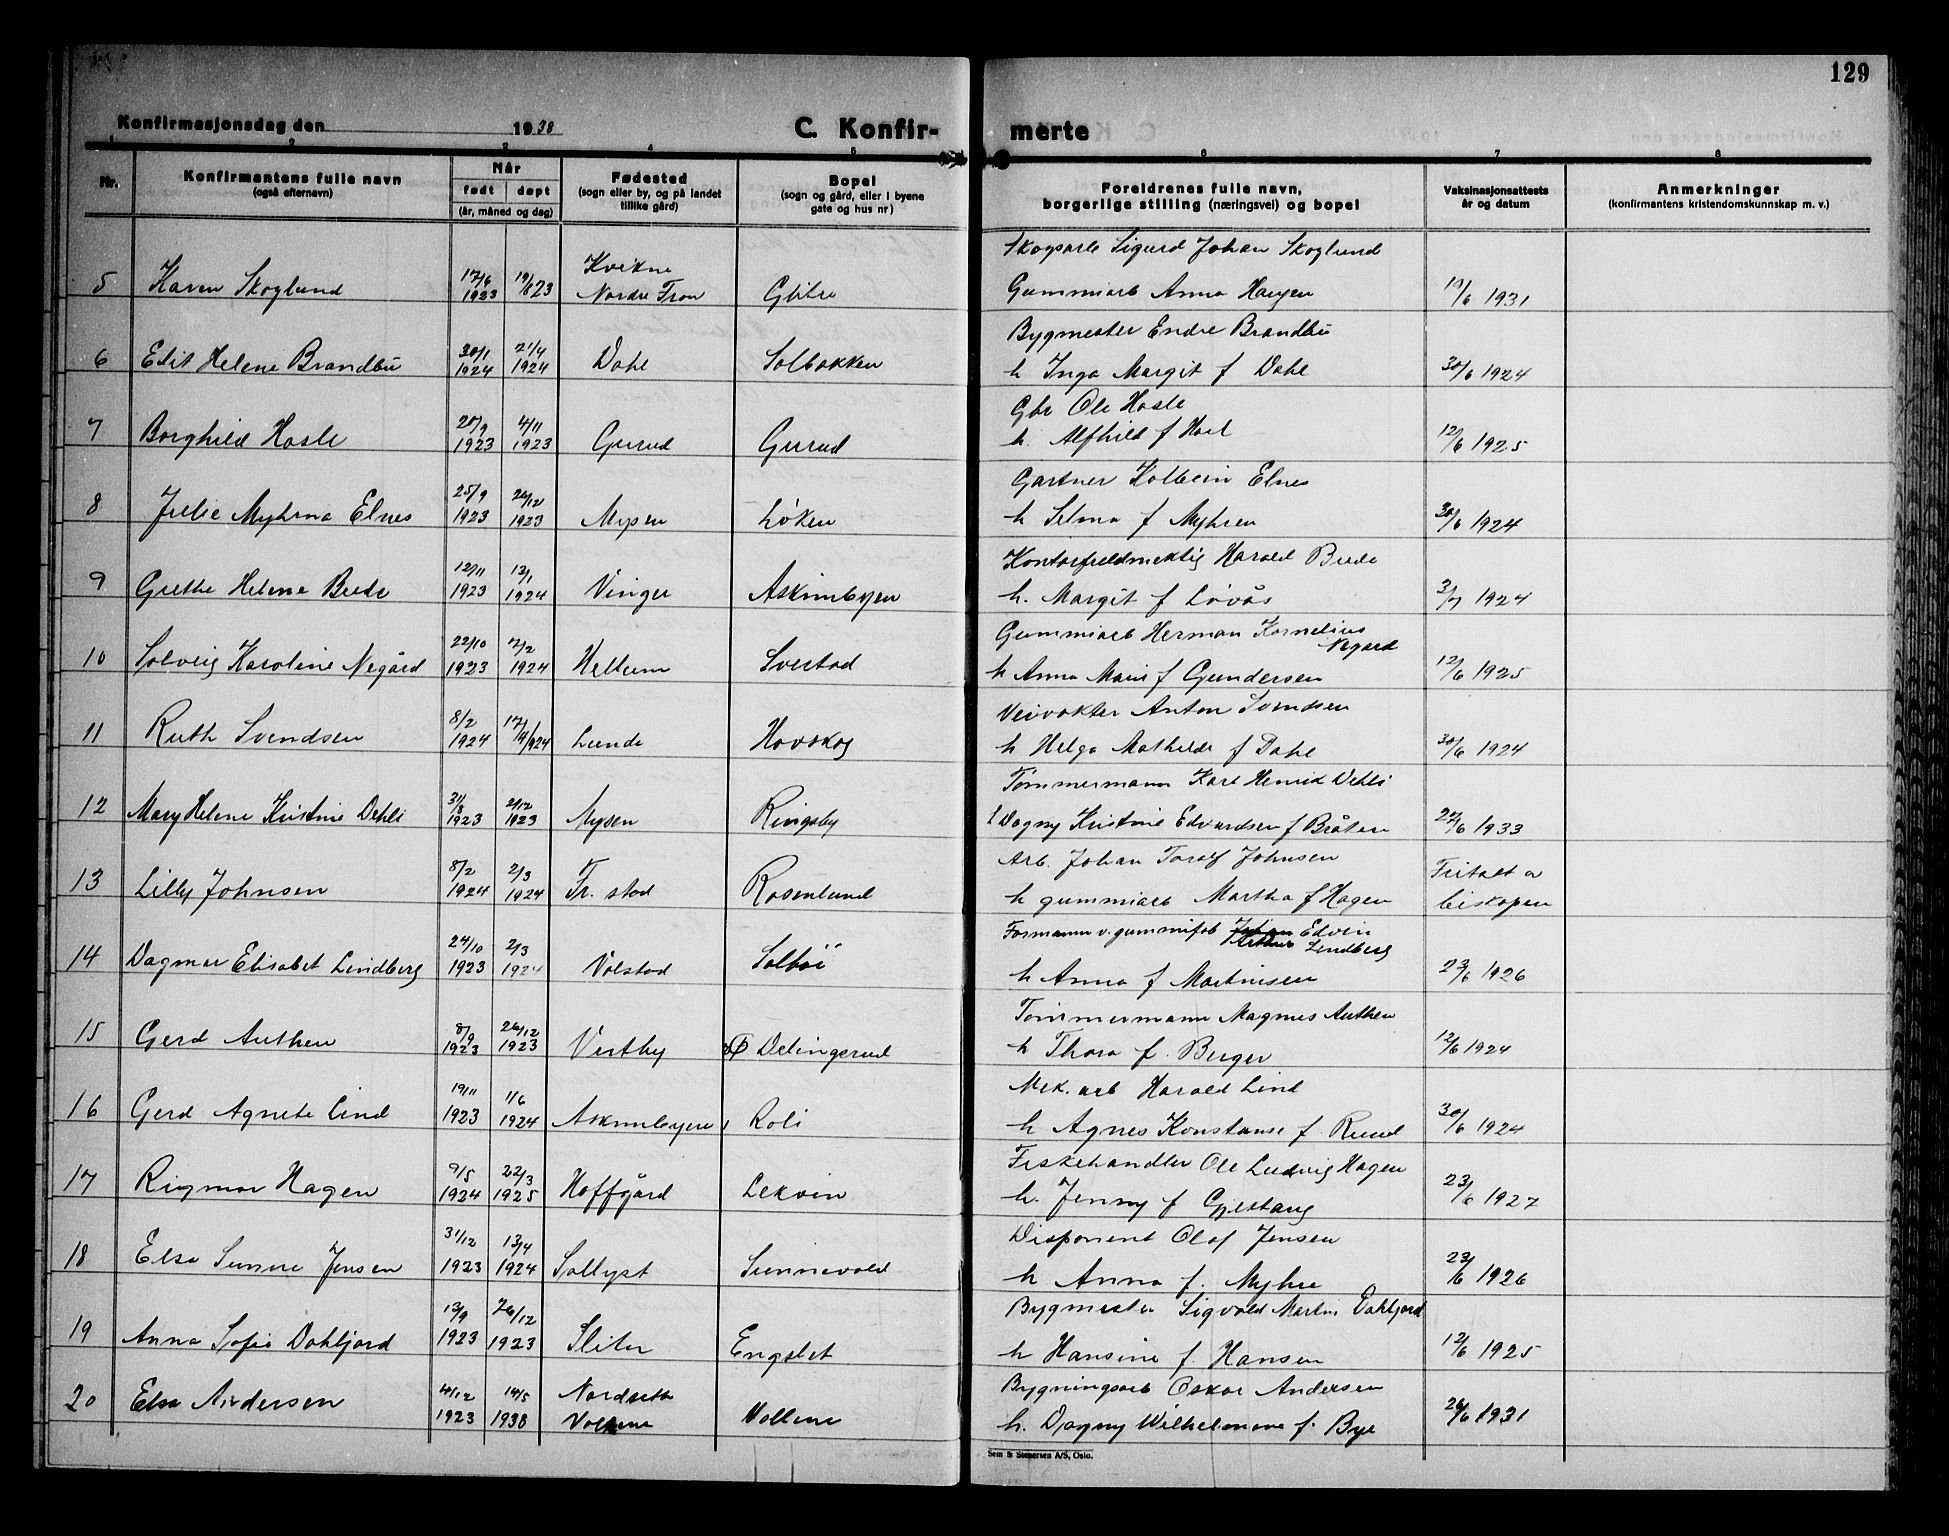 129
Konfirmasjonsdag den 1938 C. Konfir- merte
1 2 3 4 5 6 7 8
Nr.
Konfirmantens fulle navn
(også efternavn)
Når
født døpt
(år, måned og dag)
Fødested
(sogn eller by, og på landet
tillike gård)
Bopel
(sogn og gård, eller i byene
gate og hus nr)
Foreldrenes fulle navn,
borgerlige stilling (næringsvei) og bopel
Vaksinasjonsattests
år og datum
Anmerkninger
(konfirmantens kristendomskunnskap m. v.)
Kvikne Skogsarb Sigurd Johan Skoglund
5 Karen Skoglund 17/6 1923 19/8 23 Nordre Fron Glitre Gummiarb Anna Haugen 19/6 1931
Bygmester Endre Brandbu
6 Edit Helene Brandbu 30/1 1924 21/4 1924 Dahl Solbakken h Inga Margit f Dahl 30/6 1924
Gbr Ole Hasle
7 Borghild Hasle 20/9 1923 4/11 1923 Gurud Gurud h. Alfhild f Hoel 12/6 1925
Gartner Kolbein Elnes
8 Julie Myhrna Elnes 25/9 1923 26/12 1923 Mysen Løken h Selma f Myhren 30/6 1924
Kontorfuldmektig Harold Brede
9 Grethe Helene Brede 12/11 1923 13/1 1924 Vinger Askimbyen h. Margit f Løvås 3/7 1924
Gummiarb Herman Kornelius
Negård
10 Solveig Karoline Negård 22/10 1923 2/2 1924 Hellum Svestad h Anna Marie f Gundersen 12/6 1925
Veivokter Anton Svendsen
11 Ruth Svendsen 8/2 1924 17/4 1924 Lunde Hovskog h Helga Mathilde f Dahl 30/6 1924
Tømmermann Karl Henrik Dehli
12 Mary Helene Kristine Dehli 31/8 1923 2/12 1923 Mysen Ringsby Dagny Kristine Edvardsen f Bråten 22/6 1933
Arb. Johan Toralf Johnsen Fritatt a
13 Lilly Johnsen 8/2 1924 2/3 1924 Fr. stad Rosenlund h gummiarb Martha f Hagen biskopen
Formann v. gummifab Edvin
Arthur Lindberg
14 Dagmar Elisabet Lindberg 24/10 1923 2/3 1924 Volstad Solbøi h Anna f Martinsen 23/6 1926
Tømmermann Magnus Authen
15 Gerd Authen 8/9 1923 26/12 1923 Vestby Ø Delingsrud h Thora f. Berger 12/6 1924
Mek. arb Harald Lind
16 Gerd Agnete Lind 19/11 1923 1/6 1924 Askimbyen Roli h Agnes Konstanse f. Ruud 30/6 1924
Fiskehandler Ole Ludvig Hagen
17 Rigmor Hagen 9/5 1924 22/3 1925 Hoffgård Lekvin h. Jenny f Gjestang 23/6 1927
Disponent Olaf Jensen
18 Elsa Sunne Jensen 31/12 1923 13/4 1924 Sollyst Sunnevold h Anna f. Myhre 23/6 1926
Bygmester Sigvald Martin Dahlfjord
19 Anna Sofie Dahlfjord 13/9 1923 26/12 1923 Sliter Engslet h Hansine f. Hansen 12/6 1925
Nordseth Bygningsarb Oskar Andersen
20 Elsa Andersen 4/12 1923 14/5 1938 Vollene Vollene h. Dagny Wilhelmine f. Bye 26/6 1931
Sem & Stenersen A/S, Oslo.